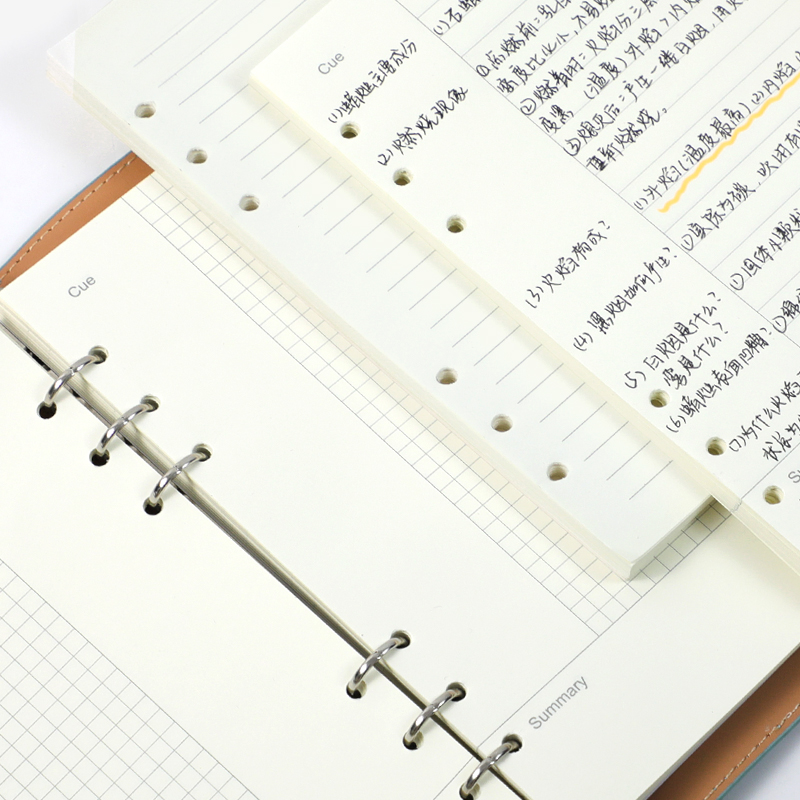 Cue
(1)蜡烛主要成分
(2)燃烧现象
(3)火焰构成?
(4)黑烟如何产生?
(5)白烟是什么?
雾是什么?
(6)蜡烛表面凹槽?
(7)为什么火焰
(1)石蜡
①点燃前:乳白
密度比水小,不易
②燃着时:火焰分三层
(温度)外焰>内焰
③熄灭后:产生一缕白烟,用火
重新燃烧。
(1)外焰(温度最高)(2)内焰
①实际为碳,
①固体小颗粒
Cue
Summary